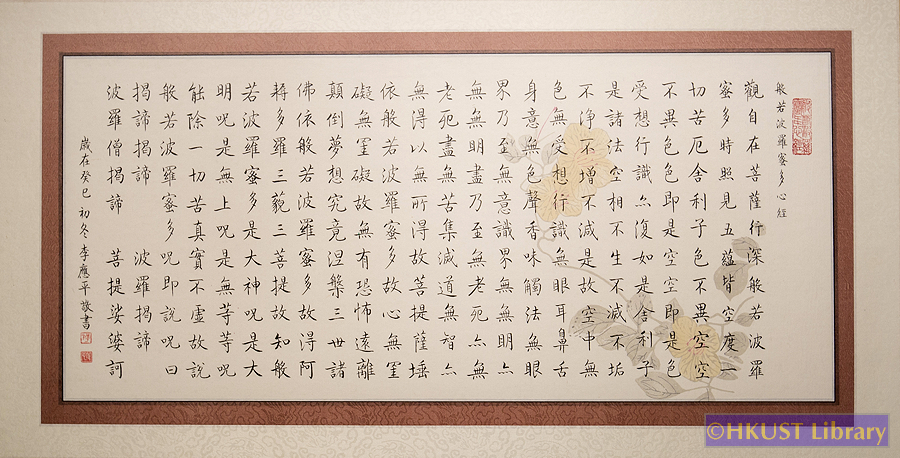 般若波羅蜜多心經
觀自在菩薩行深般若波羅
蜜多時照見五蘊皆空度一
切苦厄舍利子色不異空空
不異色色即是空空即是色
受想行識亦復如是舍利子
是諸法空相不生不滅不垢
不淨不增不減是故空中無
色無受想行識無眼耳鼻舌
身意無色聲香味觸法無眼
界乃至無意識界無無明亦
無無明盡乃至無老死亦無
老死盡無苦集滅道無智亦
無得以無所得故菩提薩埵
依般若波羅蜜多故心無罣
礙無罣礙故無有恐怖遠離
顛倒夢想究竟涅槃三世諸
佛依般若波羅蜜多故得阿
耨多羅三藐三菩提故知般
若波羅蜜多是大神呪是大
明呪是無上呪是無等等呪
能除一切苦真實不虛故說
般若波羅蜜多呪即說呪曰
揭諦揭諦 波羅揭諦
波羅僧揭諦 菩提娑婆訶
歲在癸巳初冬李應平敬書
©HKUST Library